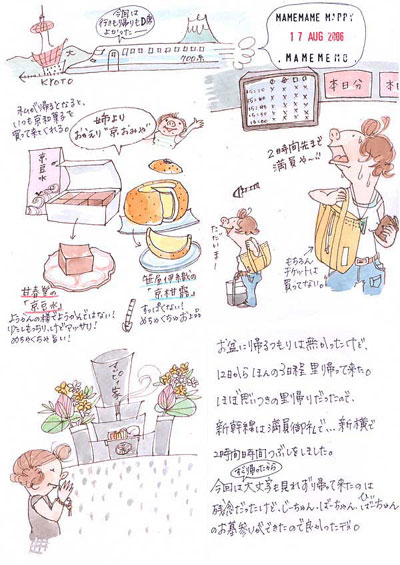 今回は
行きも帰りもD席
よかった
KYOTO
700系
MAMEMAME MAPPY
17 AUG 2006
.MAMEMEMO
本日分
2時間先まで
満員や〜!!
私が帰るとなると、
いつも京和菓子を
買って来てくれる。
姉より
おかえり"京おみや"
京豆水
甘春堂の
「京豆水」
ようかんの様でようかんではない!
めちゃくちゃ旨い!
笹屋伊織の
「京柑露」
すっぱくない!
めちゃくちゃ
ただいまー
もちろん
チケットは
買ってない。
お盆に帰るつもりは無かったけど、
12日からほんの3日程里帰って来た。
ほぼ思いつきの里帰りだったので、
新幹線は満員御礼で…新横で
2時間時間つぶしをしました。
すぐ帰ったから
今回は大文字も見れず帰って来たのは
残念だったけど、じーちゃん、ばーちゃん、ひいばーちゃん
のお墓参りができたので良かったデス。